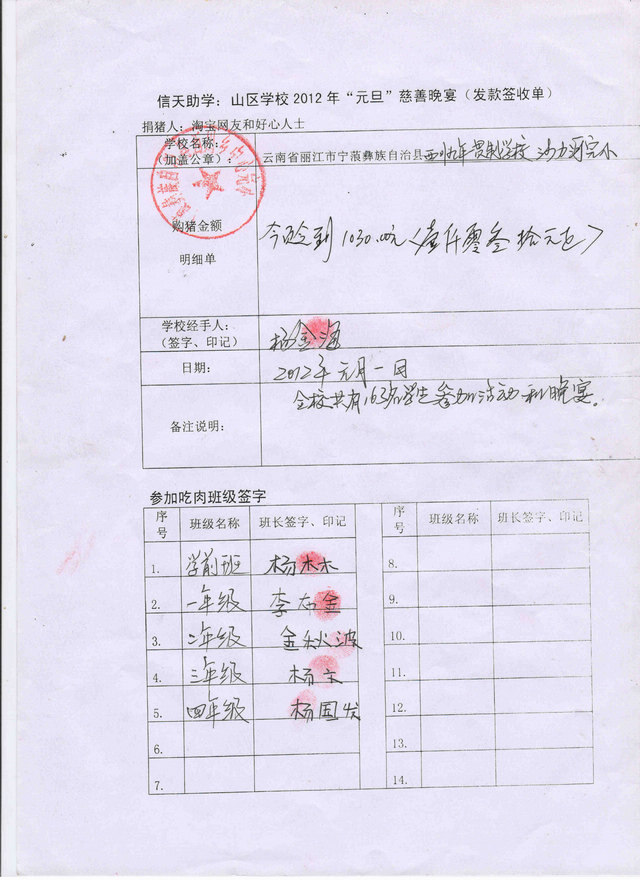 信天助学：山区学校2012年“元旦”慈善晚宴（发款签收单）
捐猪人：淘宝网友和好心人士
学校名称：
（加盖公章）：
云南省丽江市宁蒗彝族自治县西川九年贯制学校 沙力河完小
购猪金额
明细单
今领到1030.00元〈壹仟零叁拾元正〉
学校经手人：
（签字、印记）
杨金海
日期：
2012年元月一日
备注说明：
全校共有163名学生参加活动和晚宴。
参加吃肉班级签字
序号 班级名称 班长签字、印记 序号 班级名称 班长签字、印记
1. 学前班 杨木木 8.
2. 一年级 李 金 9.
3. 二年级 金秋波 10.
4. 三年级 杨文 11.
5. 四年级 杨国发 12.
6. 13.
7. 14.